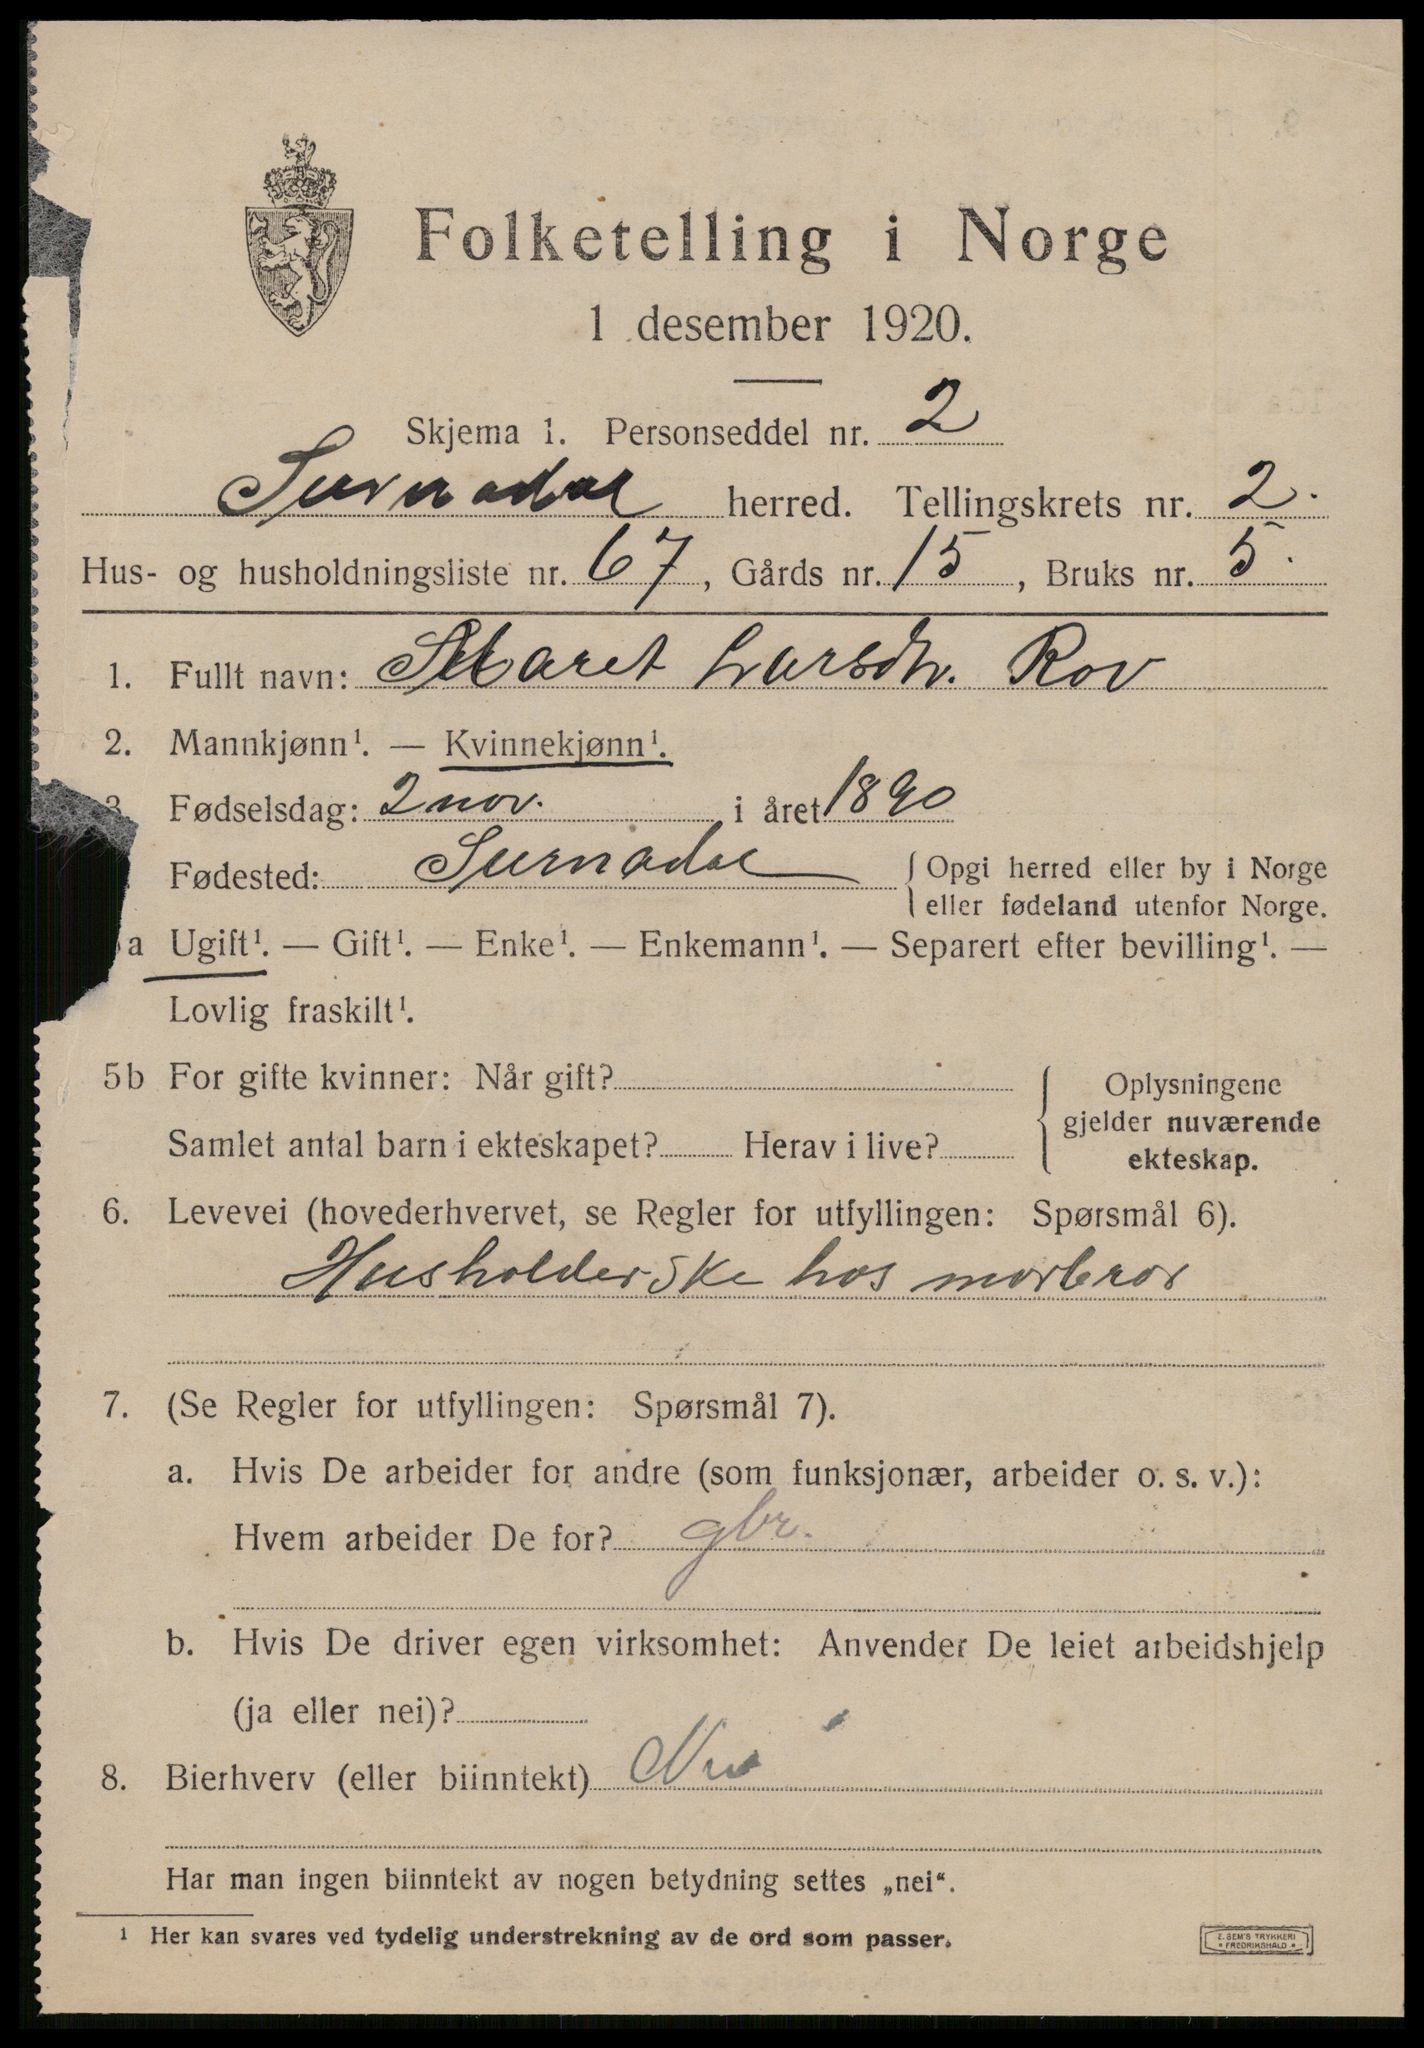 Folketelling i Norge
1 desember 1920.
Skjema 1. Personseddel nr. 2
Surnadal herred. Tellingskrets nr. 2.
Hus- og husholdningsliste nr. 67, Gårds nr. 15, Bruks nr. 5.
1. Fullt navn: Maret Larsdtr. Rov
2. Mannkjønn¹. — Kvinnekjønn¹.
3. Fødselsdag: 2 nov. i året 1890
Fødested: Surnadal { Opgi herred eller by i Norge
eller fødeland utenfor Norge.
a Ugift¹. — Gift¹. — Enke¹. — Enkemann¹. — Separert efter bevilling¹. —
Lovlig fraskilt¹.
5b For gifte kvinner: Når gift? { Oplysningene
gjelder nuværende
Samlet antal barn i ekteskapet? Herav i live?
ekteskap.
6. Levevei (hovederhvervet, se Regler for utfyllingen: Spørsmål 6).
Husholderske hos morbror
7. (Se Regler for utfyllingen: Spørsmål 7).
a. Hvis De arbeider for andre (som funksjonær, arbeider o. s. v.):
Hvem arbeider De for? gbr.
b. Hvis De driver egen virksomhet: Anvender De leiet arbeidshjelp
(ja eller nei)?
8. Bierhverv (eller biinntekt) Nei
Har man ingen biinntekt av nogen betydning settes „nei“.
¹ Her kan svares ved tydelig understrekning av de ord som passer.
E. SEM'S TRYKKERI
FREDRIKSHALD